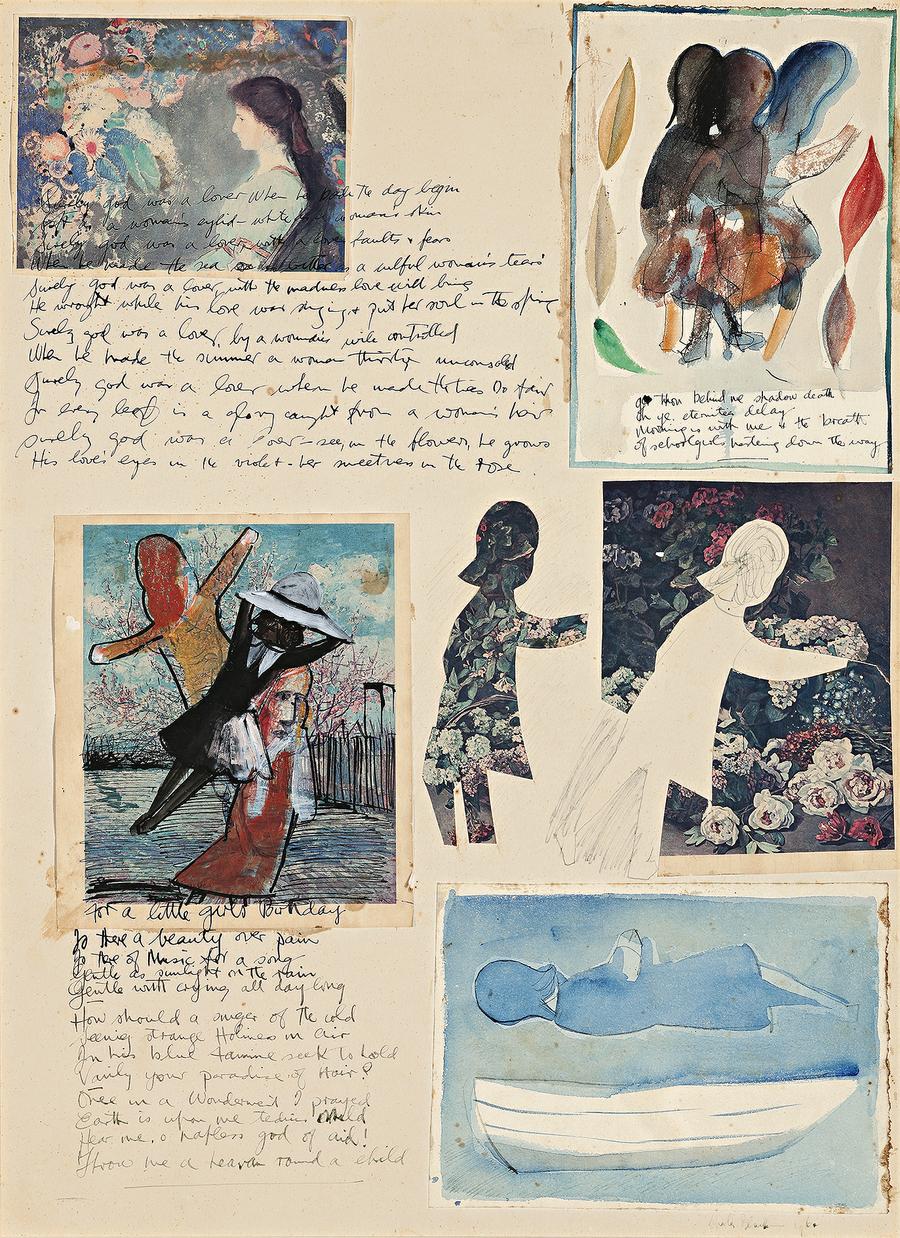 Surely god was a lover when he bade the day begin
Soft as a woman's eyelid - white as a woman's skin
Surely god was a lover with a lover's faults & fears
When he made the sea as bitter as a wilful woman's tears
Surely god was a lover with the madness love will bring
He wrought while his love was singing & put her soul in the spring
Surely god was a lover, by a woman's wile controlled
When he made the summer a woman thirsty unconsoled
Surely god was a lover when he made the trees so fair
In every leaf is a glory caught from a woman's hair
Surely god was a lover - see, in the flowers, he grows
His love's eyes in the violet - her sweetness in the rose
go thou behind me shadow death
oh ye eternities delay
Morning is with me & the breath
of schoolgirls hastening down the way
For a little girls Birthday
Is there a beauty over pain
Is there of Music for a song
Gentle as sunlight on the rain
Gentle with crying all day long
How should a singer of the cold
Seeing strange Holiness in air
In his blind famine seek to hold
Vainly your paradise of Hair?
Once in a Wonderment I prayed
Earth is upon me
Hear me, o hapless god of aid!
Throw me a heaven round a child